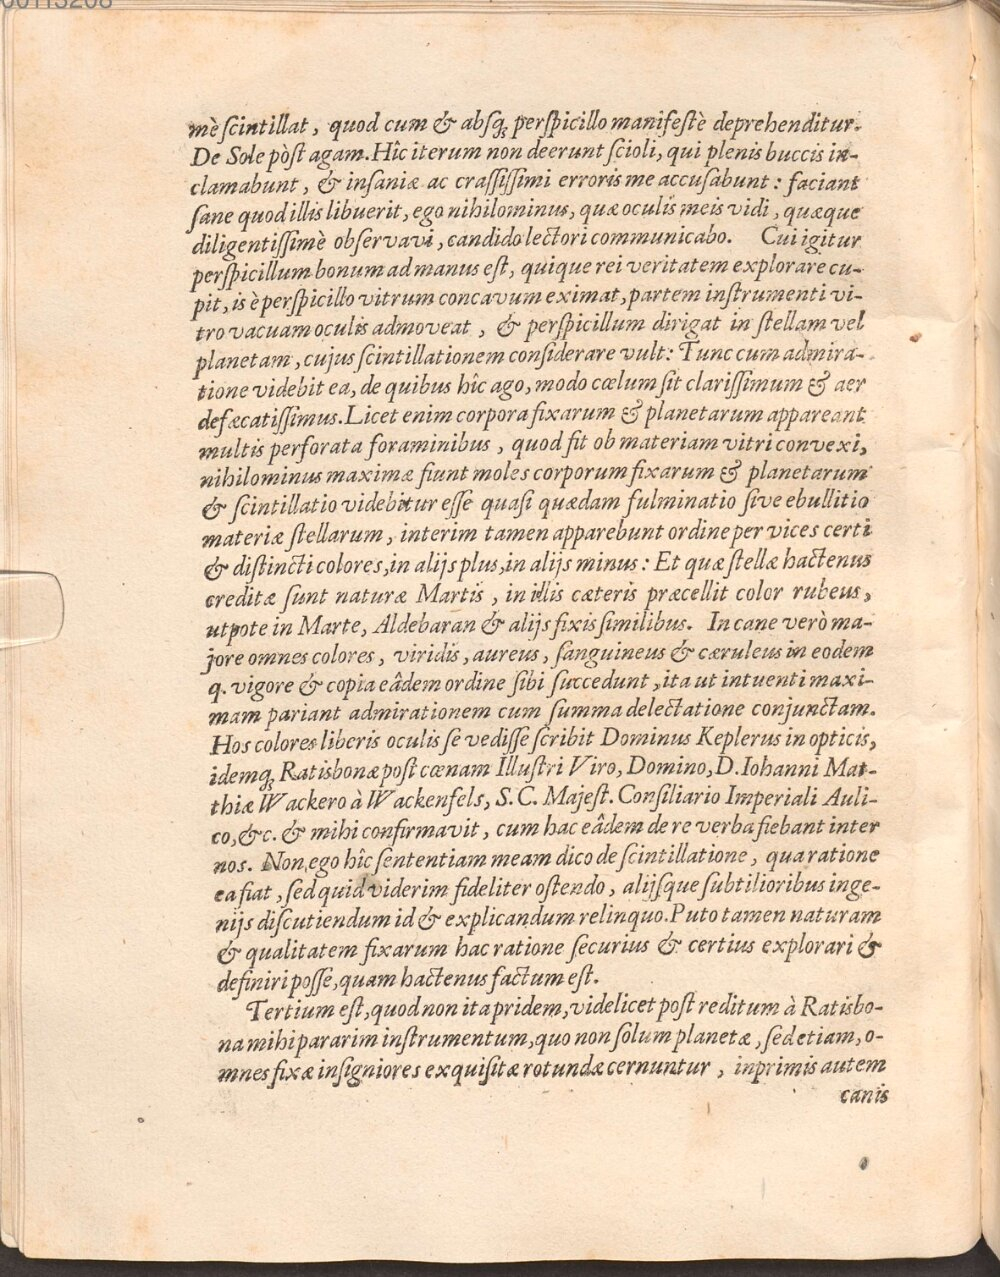 mè scintillat, quod cum & absq; perspicillo manifestè deprehenditur.
De Sole pòst agam. Hîc iterum non deerunt scioli, qui plenis buccis in-
clamabunt, & insaniæ ac crassissimi erroris me accusabunt: faciant
sane quod illis libuerit, ego nihilominus, quæ oculis meis vidi, quæque
diligentissimè observavi, candido lectori communicabo. Cui igitur
perspicillum bonum ad manus est, quique rei veritatem explorare cu-
pit, is è perspicillo vitrum concavum eximat, partem instrumenti vi-
tro vacuam oculis admoveat, & perspicillum dirigat in stellam vel
planetam, cujus scintillationem considerare vult: Tunc cum admira-
tione videbit ea, de quibus hîc ago, modo cœlum sit clarissimum & aer
defæcatissimus. Licet enim corpora fixarum & planetarum appareant
multis perforata foraminibus, quod fit ob materiam vitri convexi,
nihilominus maximæ fiunt moles corporum fixarum & planetarum
& scintillatio videbitur esse quasi quædam fulminatio sive ebullitio
materiæ stellarum, interim tamen apparebunt ordine per vices certi
& distincti colores, in alijs plus, in alijs minus: Et quæ stellæ hactenus
creditæ sunt naturæ Martis, in illis cæteris præcellit color rubeus,
utpote in Marte, Aldebaran & alijs fixis similibus. In cane verò ma-
jore omnes colores, viridis, aureus, sanguineus & cæruleus in eodem
q. vigore & copia eâdem ordine sibi succedunt, ita ut intuenti maxi-
mam pariant admirationem cum summa delectatione conjunctam.
Hos colores liberis oculis se vedisse scribit Dominus Keplerus in opticis,
idemq; Ratisbonæ post cœnam Illustri Viro, Domino, D. Iohanni Mat-
thiæ Wackero à Wackenfels, S. C. Majest. Consiliario Imperiali Auli-
co, &c. & mihi confirmavit, cum hac eâdem de re verba fiebant inter
nos. Non ego hîc sententiam meam dico de scintillatione, qua ratione
ea fiat, sed quid viderim fideliter ostendo, alijsque subtilioribus inge-
nijs discutiendum id & explicandum relinquo. Puto tamen naturam
& qualitatem fixarum hac ratione securius & certius explorari &
definiri posse, quam hactenus factum est.
Tertium est, quod non ita pridem, videlicet post reditum à Ratisbo-
na mihi pararim instrumentum, quo non solum planetæ, sed etiam, o-
mnes fixæ insigniores exquisitæ rotundæ cernuntur, inprimis autem
canis